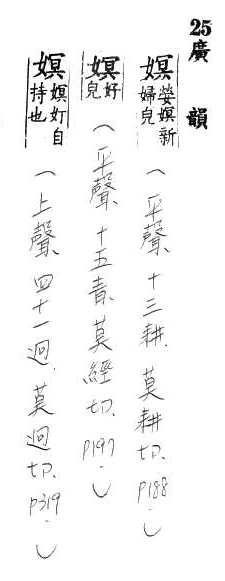 25廣韻
嫇 嫈嫇新婦皃（平聲、十三耕、莫耕切、P188.）
嫇 好皃（平聲、十五青、莫經切、P197.）
嫇 嫇奵自持也（上聲、四十一迥、莫迥切、P319.）